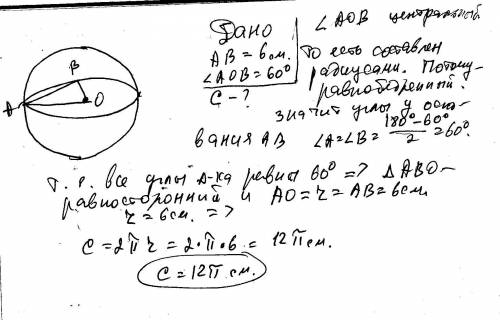 Дано
AB = 6 см.
∠AOB = 60°
C - ?
∠AOB центральный
то есть составлен
радиусами. Потому
равнобедренный.
значит углы у осно-
вания AB ∠A = ∠B = (180° - 60°)/2 = 60°.
т.е. все углы Δ-ка равны 60° => ΔABO -
равносторонний и AO = r = AB = 6 см
r = 6 см. =>
C = 2πr = 2·π·6 = 12π см.
C = 12π см.
A
B
O